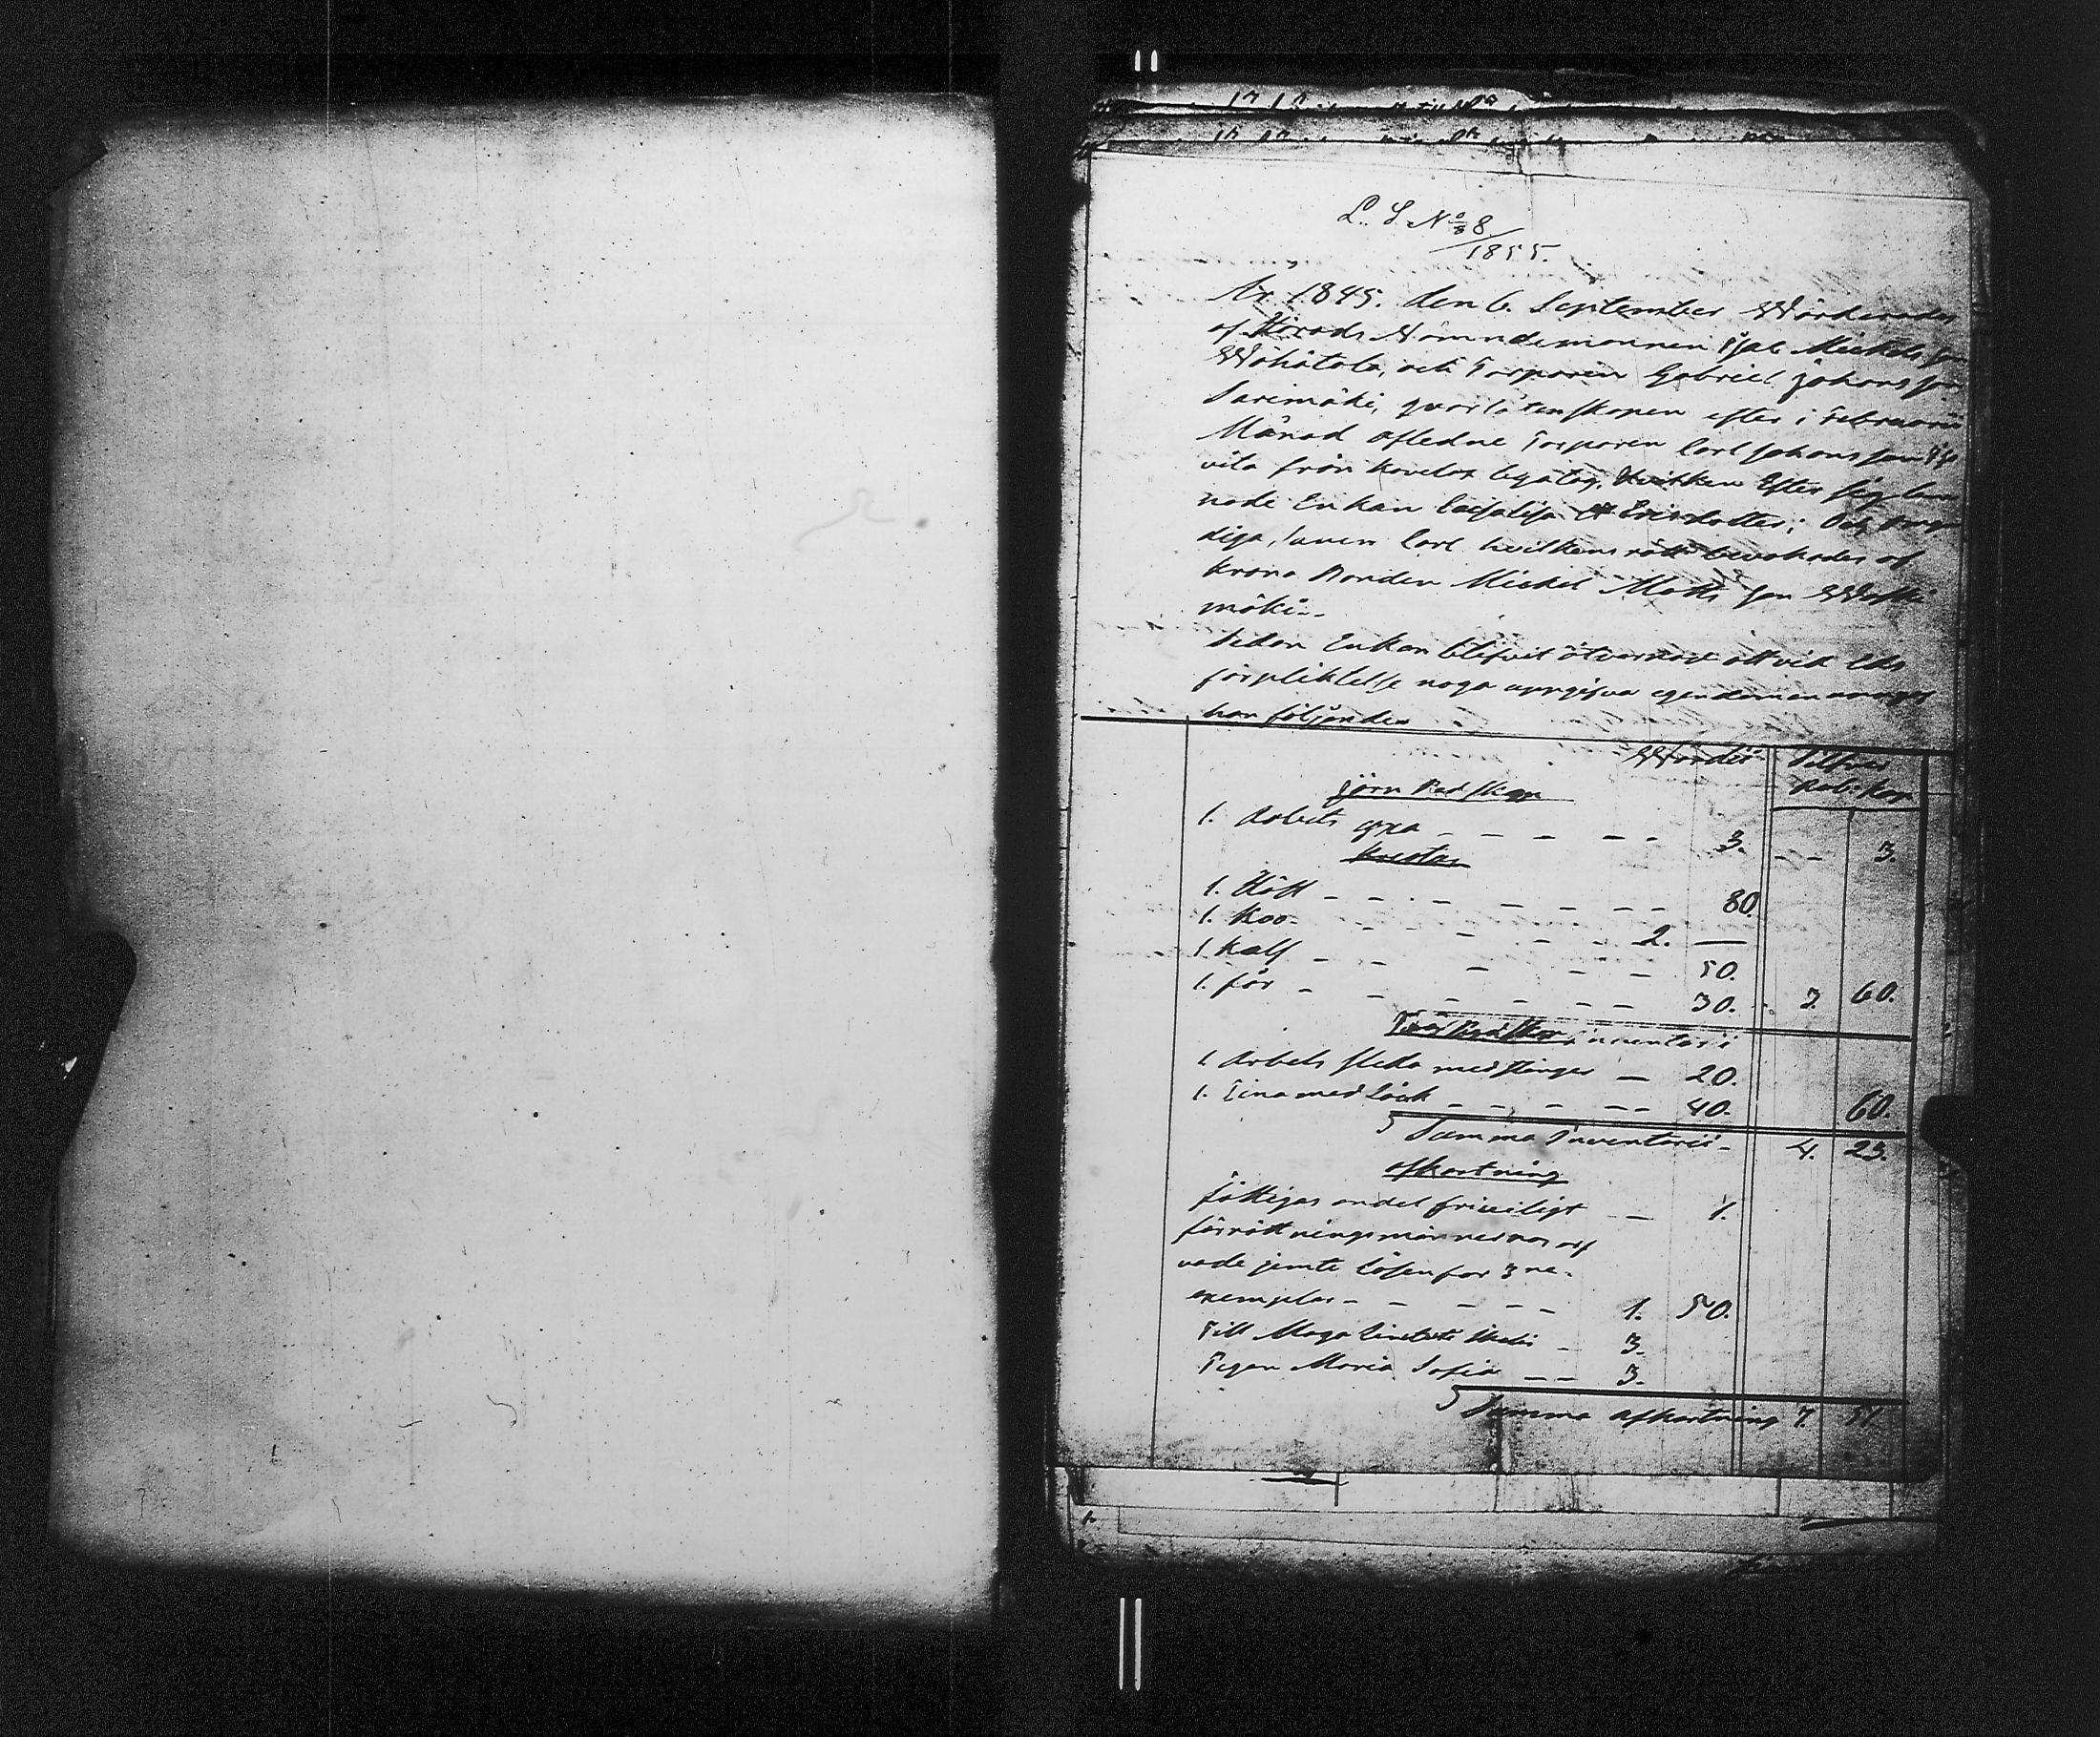 L. S. No 8
1855.
År 1845. den 6. September Wärderades
af Härads Nämndemannen Isac Mickels son
Wähätalo, och Torparen Gabriel Johans son
Sarimäki, qvarlåtenskapen efter i Februarii
Månad afledne Torparen Carl Johans son
från lägatog, hvilken Efter sig lem
nade Enkan Cajsalisa Ericsdotter; Och omyn
diga, sonen Carl hvilkens rätt bevakades af
krono Bonden Mickel Matts son
mäki..
Sedan Enkan blifvit åtvarnad att vid Eds
förpliktelse noga uppgifva egendomen
han följande
Wärdit Silfver
Rub. kop
Järn Redskap
1. Arbets yxa _ _ _ _ _ 3. _ _ 3.
Kreatur
1. Häst _ _ _ _ _ _ _ 80.
1. Koo _ _ _ _ 2. —
1. Kalf _ _ _ _ _ 50.
1. får _ _ _ _ _ _ 30. 3. 60.
Träd Redskap inventarii
1. Arbets släda med stänger — 20.
1. Tina med Låck _ _ _ _ _ 40. 60.
Summa Inventarii 4. 23.
afkortning
fattigas andel friviligt _ _ 1.
förrättningsmännernas arf
vade jemte Lösen för 3 ne
exemplar _ _ _ _ _ 1. 50.
Till _ 3.
Pigan Maria Sofia _ _ 3.
Summa afkortning 7. 51.